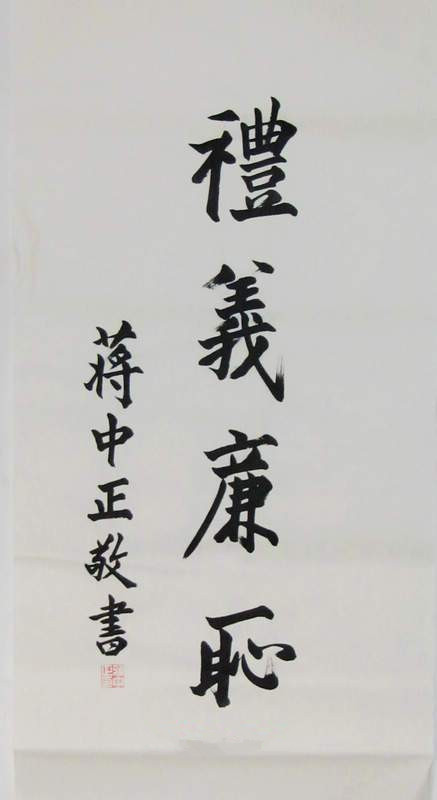 禮義廉恥
蔣中正敬書